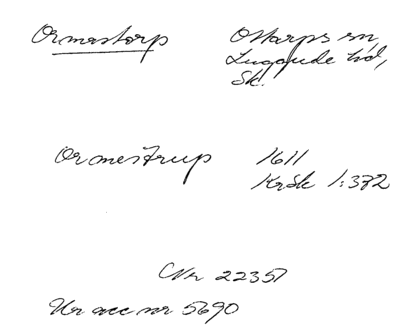 Ormastorp Ottarps sn,
Luggude hd,
Sk.
Ormestrup 1611
KrSk 1:372
CNr 22357
Ur acc nr 5690